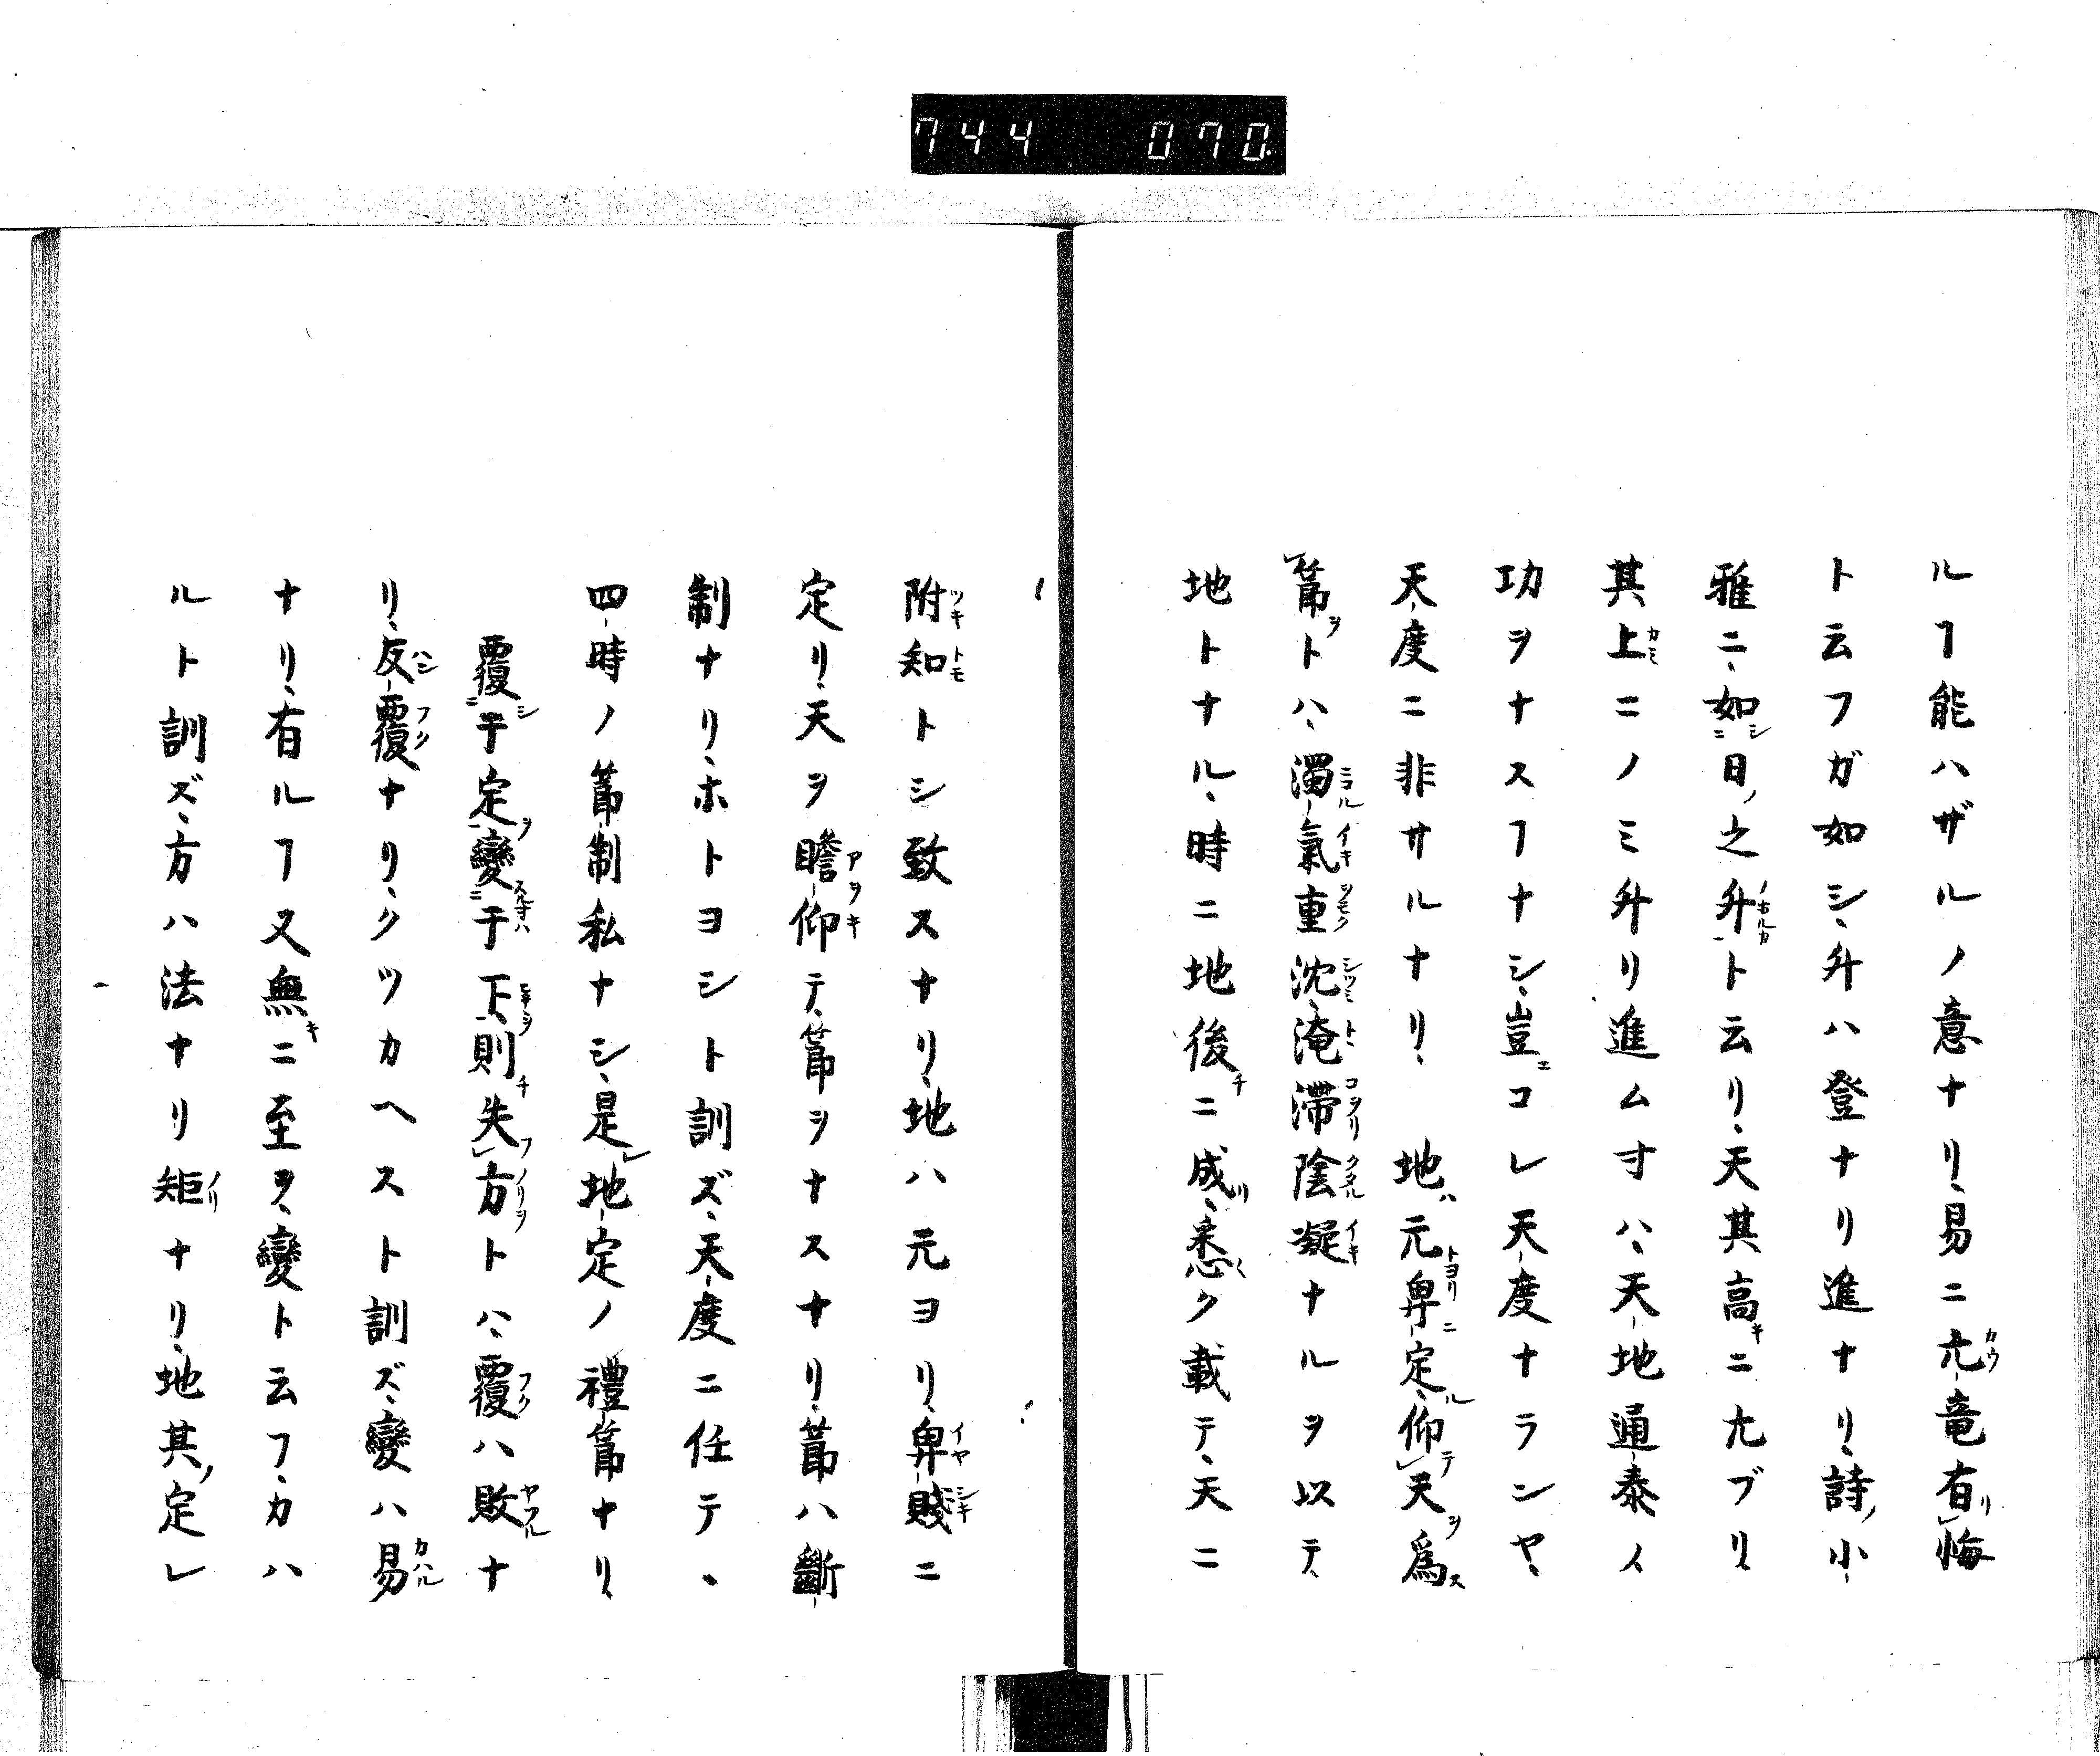 744 070
ルヿ能ハザルノ意ナリ、易ニ亢竜有悔
ト云フガ如シ、升ハ登ナリ進ナリ、詩小
雅ニ、如日之升ト云リ、天其高ニ亢ブリ
其上ニノミ升リ進ム寸ハ、天地通泰ノ
功ヲナスヿナシ、豈コレ天度ナランヤ、
天度ニ非サルナリ、 地元卑定、仰天爲
節トハ、濁氣重沈、淹滞陰凝ナルヲ以テ、
地トナル、時ニ地後ニ成、悉ク載テ、天ニ
附知トシ致スナリ、地ハ元ヨリ、卑賤ニ
定リ、天ヲ瞻仰テ、節ヲナスナリ、節ハ斷
制ナリ、ホトヨシト訓ズ、天度ニ任テ、
四時ノ節制私ナシ、是地定ノ禮節ナリ、
覆于定變于下、則失方トハ、覆ハ敗ナ
リ、反覆ナリ、クツカヘスト訓ズ、變ハ易
ナリ、有ルヿ又無ニ至ヲ、變ト云フ、カハ
ルト訓ズ、方ハ法ナリ矩ナリ、地其定レ